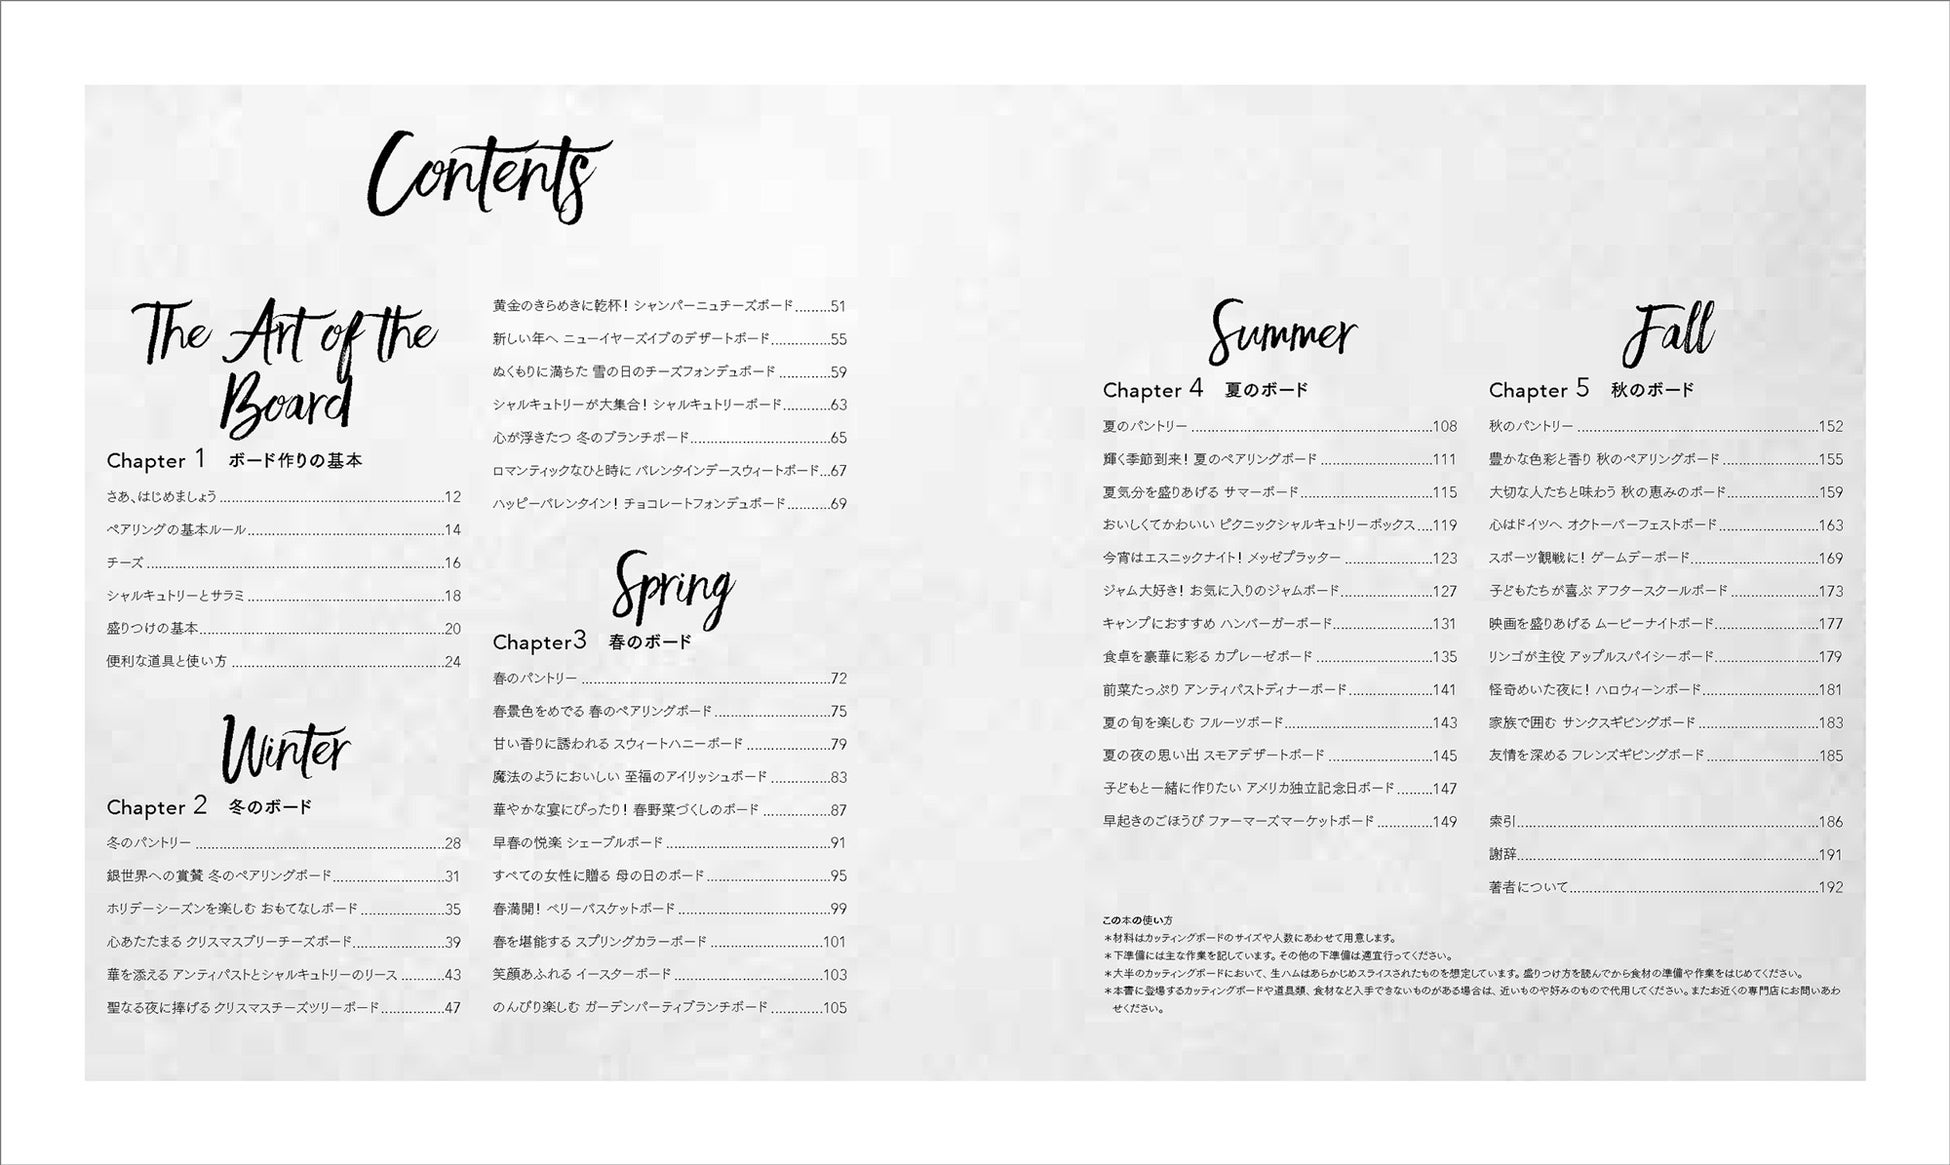 Contents
The Art of the
Board
Chapter 1 ボード作りの基本
さあ、はじめましょう……12
ペアリングの基本ルール……14
チーズ……16
シャルキュトリーとサラミ……18
盛りつけの基本……20
便利な道具と使い方……24
Winter
Chapter 2 冬のボード
冬のパントリー……28
銀世界への賞賛 冬のペアリングボード……31
ホリデーシーズンを楽しむ おもてなしボード……35
心あたたまる クリスマスブリーチーズボード……39
華を添える アンティパストとシャルキュトリーのリース……43
聖なる夜に捧げる クリスマスチーズツリーボード……47
黄金のきらめきに乾杯! シャンパーニュチーズボード……51
新しい年へ ニューイヤーズイブのデザートボード……55
ぬくもりに満ちた 雪の日のチーズフォンデュボード……59
シャルキュトリーが大集合! シャルキュトリーボード……63
心が浮きたつ 冬のブランチボード……65
ロマンティックなひと時に バレンタインデースウィートボード…67
ハッピーバレンタイン! チョコレートフォンデュボード……69
Spring
Chapter3 春のボード
春のパントリー……72
春景色をめでる 春のペアリングボード……75
甘い香りに誘われる スウィートハニーボード……79
魔法のようにおいしい 至福のアイリッシュボード……83
華やかな宴にぴったり! 春野菜づくしのボード……87
早春の悦楽 シェーブルボード……91
すべての女性に贈る 母の日のボード……95
春満開! ベリーバスケットボード……99
春を堪能する スプリングカラーボード……101
笑顔あふれる イースターボード……103
のんびり楽しむ ガーデンパーティブランチボード……105
Summer
Chapter 4 夏のボード
夏のパントリー……108
輝く季節到来! 夏のペアリングボード……111
夏気分を盛りあげる サマーボード……115
おいしくてかわいい ピクニックシャルキュトリーボックス……119
今宵はエスニックナイト! メッゼプラッター……123
ジャム大好き! お気に入りのジャムボード……127
キャンプにおすすめ ハンバーガーボード……131
食卓を豪華に彩る カプレーゼボード……135
前菜たっぷり アンティパストディナーボード……141
夏の旬を楽しむ フルーツボード……143
夏の夜の思い出 スモアデザートボード……145
子どもと一緒に作りたい アメリカ独立記念日ボード……147
早起きのごほうび ファーマーズマーケットボード……149
Fall
Chapter 5 秋のボード
秋のパントリー……152
豊かな色彩と香り 秋のペアリングボード……155
大切な人たちと味わう 秋の恵みのボード……159
心はドイツへ オクトーバーフェストボード……163
スポーツ観戦に! ゲームデーボード……169
子どもたちが喜ぶ アフタースクールボード……173
映画を盛りあげる ムービーナイトボード……177
リンゴが主役 アップルスパイシーボード……179
怪奇めいた夜に! ハロウィーンボード……181
家族で囲む サンクスギビングボード……183
友情を深める フレンズギビングボード……185
索引……186
謝辞……191
著者について……192
この本の使い方
＊材料はカッティングボードのサイズや人数にあわせて用意します。
＊下準備には主な作業を記しています。その他の下準備は適宜行ってください。
＊大半のカッティングボードにおいて、生ハムはあらかじめスライスされたものを想定しています。盛りつけ方を読んでから食材の準備や作業をはじめてください。
＊本書に登場するカッティングボードや道具類、食材など入手できないものがある場合は、近いものや好みのもので代用してください。またお近くの専門店にお問いあわ
せください。